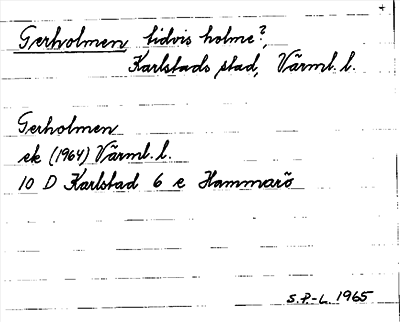 Gerholmen tidvis holme?,
Karlstads stad, Värml. l.
Gerholmen
ek (1964) Värml. l.
10 D Karlstad 6 e Hammarö
S.P-L. 1965